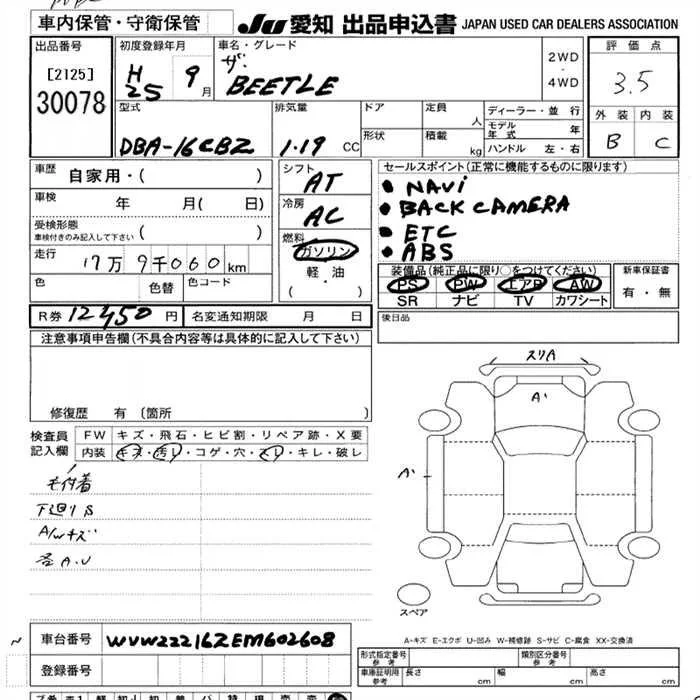 車内保管・守衛保管 JU 愛知 出品申込書 JAPAN USED CAR DEALERS ASSOCIATION
出品番号 初度登録年月 車名・グレード 評価点
[2125] H25 9月 ザ. BEETLE 2WD ・ 4WD 3.5
30078 型式 排気量 ドア 定員 人 ディーラー・並行 外装 内装
DBA-16CBZ 1.19 CC 形状 積載 kg モデル年式 年 B C
ハンドル 左・右
車歴 自家用・( ) シフト AT セールスポイント(正常に機能するものに限ります)
車検 年 月( 日) 冷房 AC • NAVi
受検形態 車検付きのみ記入して下さい ( ) • BACK CAMERA
走行 17万9千060km 燃料 ガソリン • ETC
色 色替 色コード 軽・油 • ABS
( ・ ) 装備品(純正品に限り○をつけてください) 新車保証書
PS PW エアB AW 有・無
SR ナビ TV カワシート
R券 12450円 名変通知期限 月 日 後日品
注意事項申告欄(不具合内容等は具体的に記入して下さい)
修復歴 有 (箇所
検査員記入欄 FW キズ・飛石・ヒビ割・リペア跡・X要
内装 キズ・汚レ・コゲ・穴・スレ・キレ・破レ
スリA
A'
A'
毛付着
下廻りS
A/Wキズ
各A.U
スペア
A-キズ E-エクボ U-凹み W-補修跡 S-サビ C-腐食 XX-交換済
車台番号 WVWZZZ16ZEM602608
登録番号
形式指定番号 参考 類別区分番号 参考
車庫証明用 参考 長さ cm 幅 cm 高さ cm